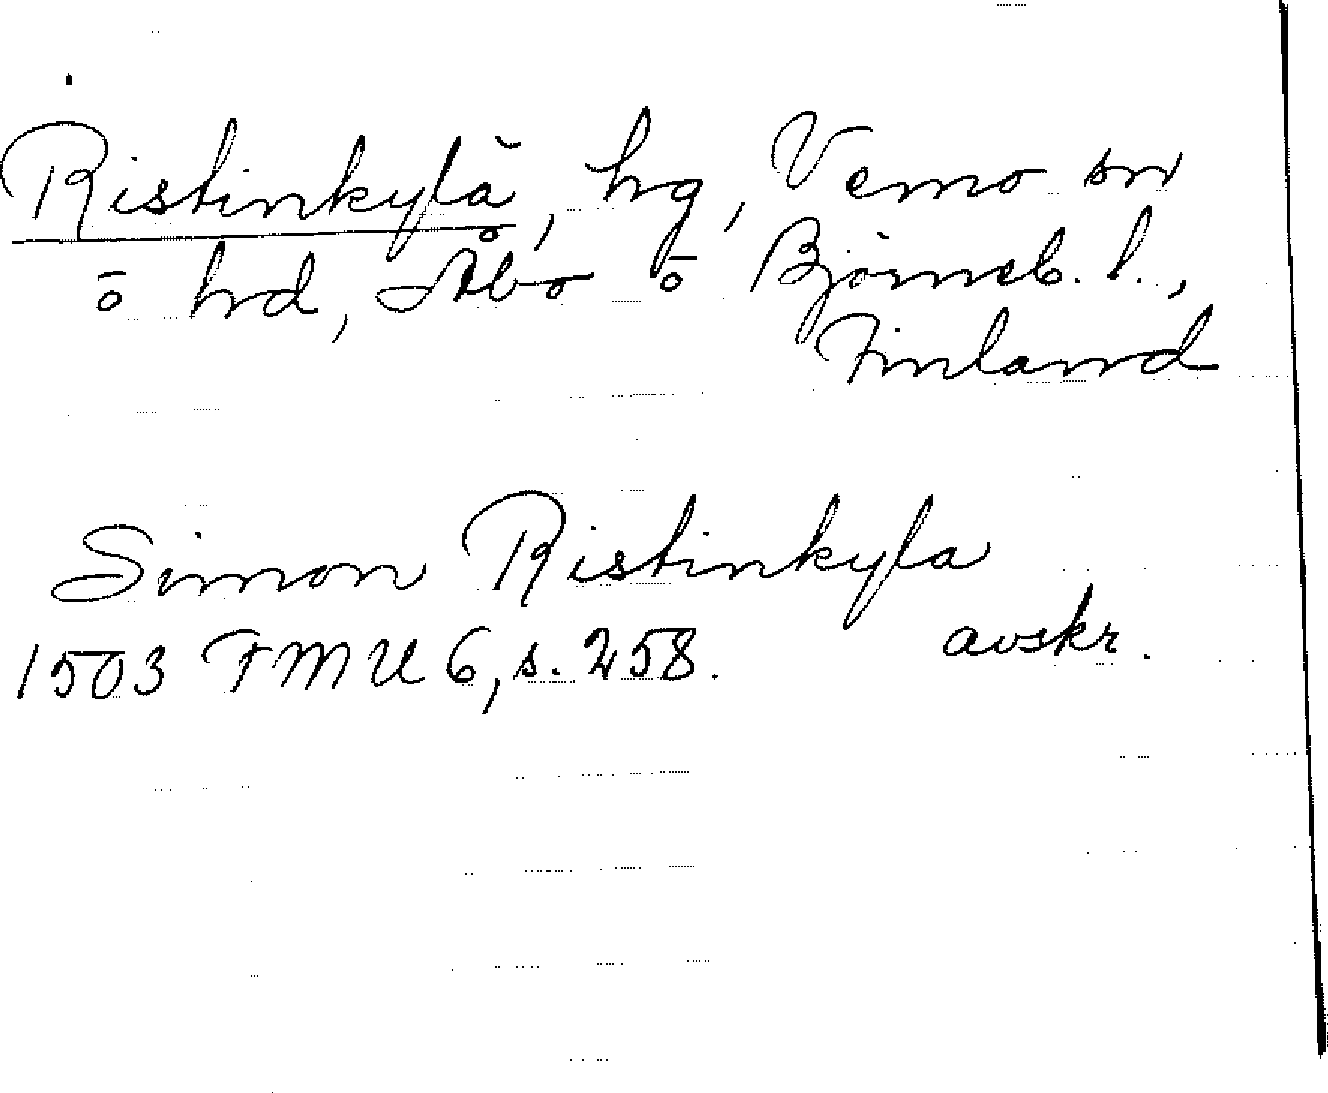 Ristinkylä, hg, Vemo sn
ō hd, Åbo ō Björneb. l.,
Finland
Simon Ristinkyla
1503 FMU 6, s. 258. avskr.